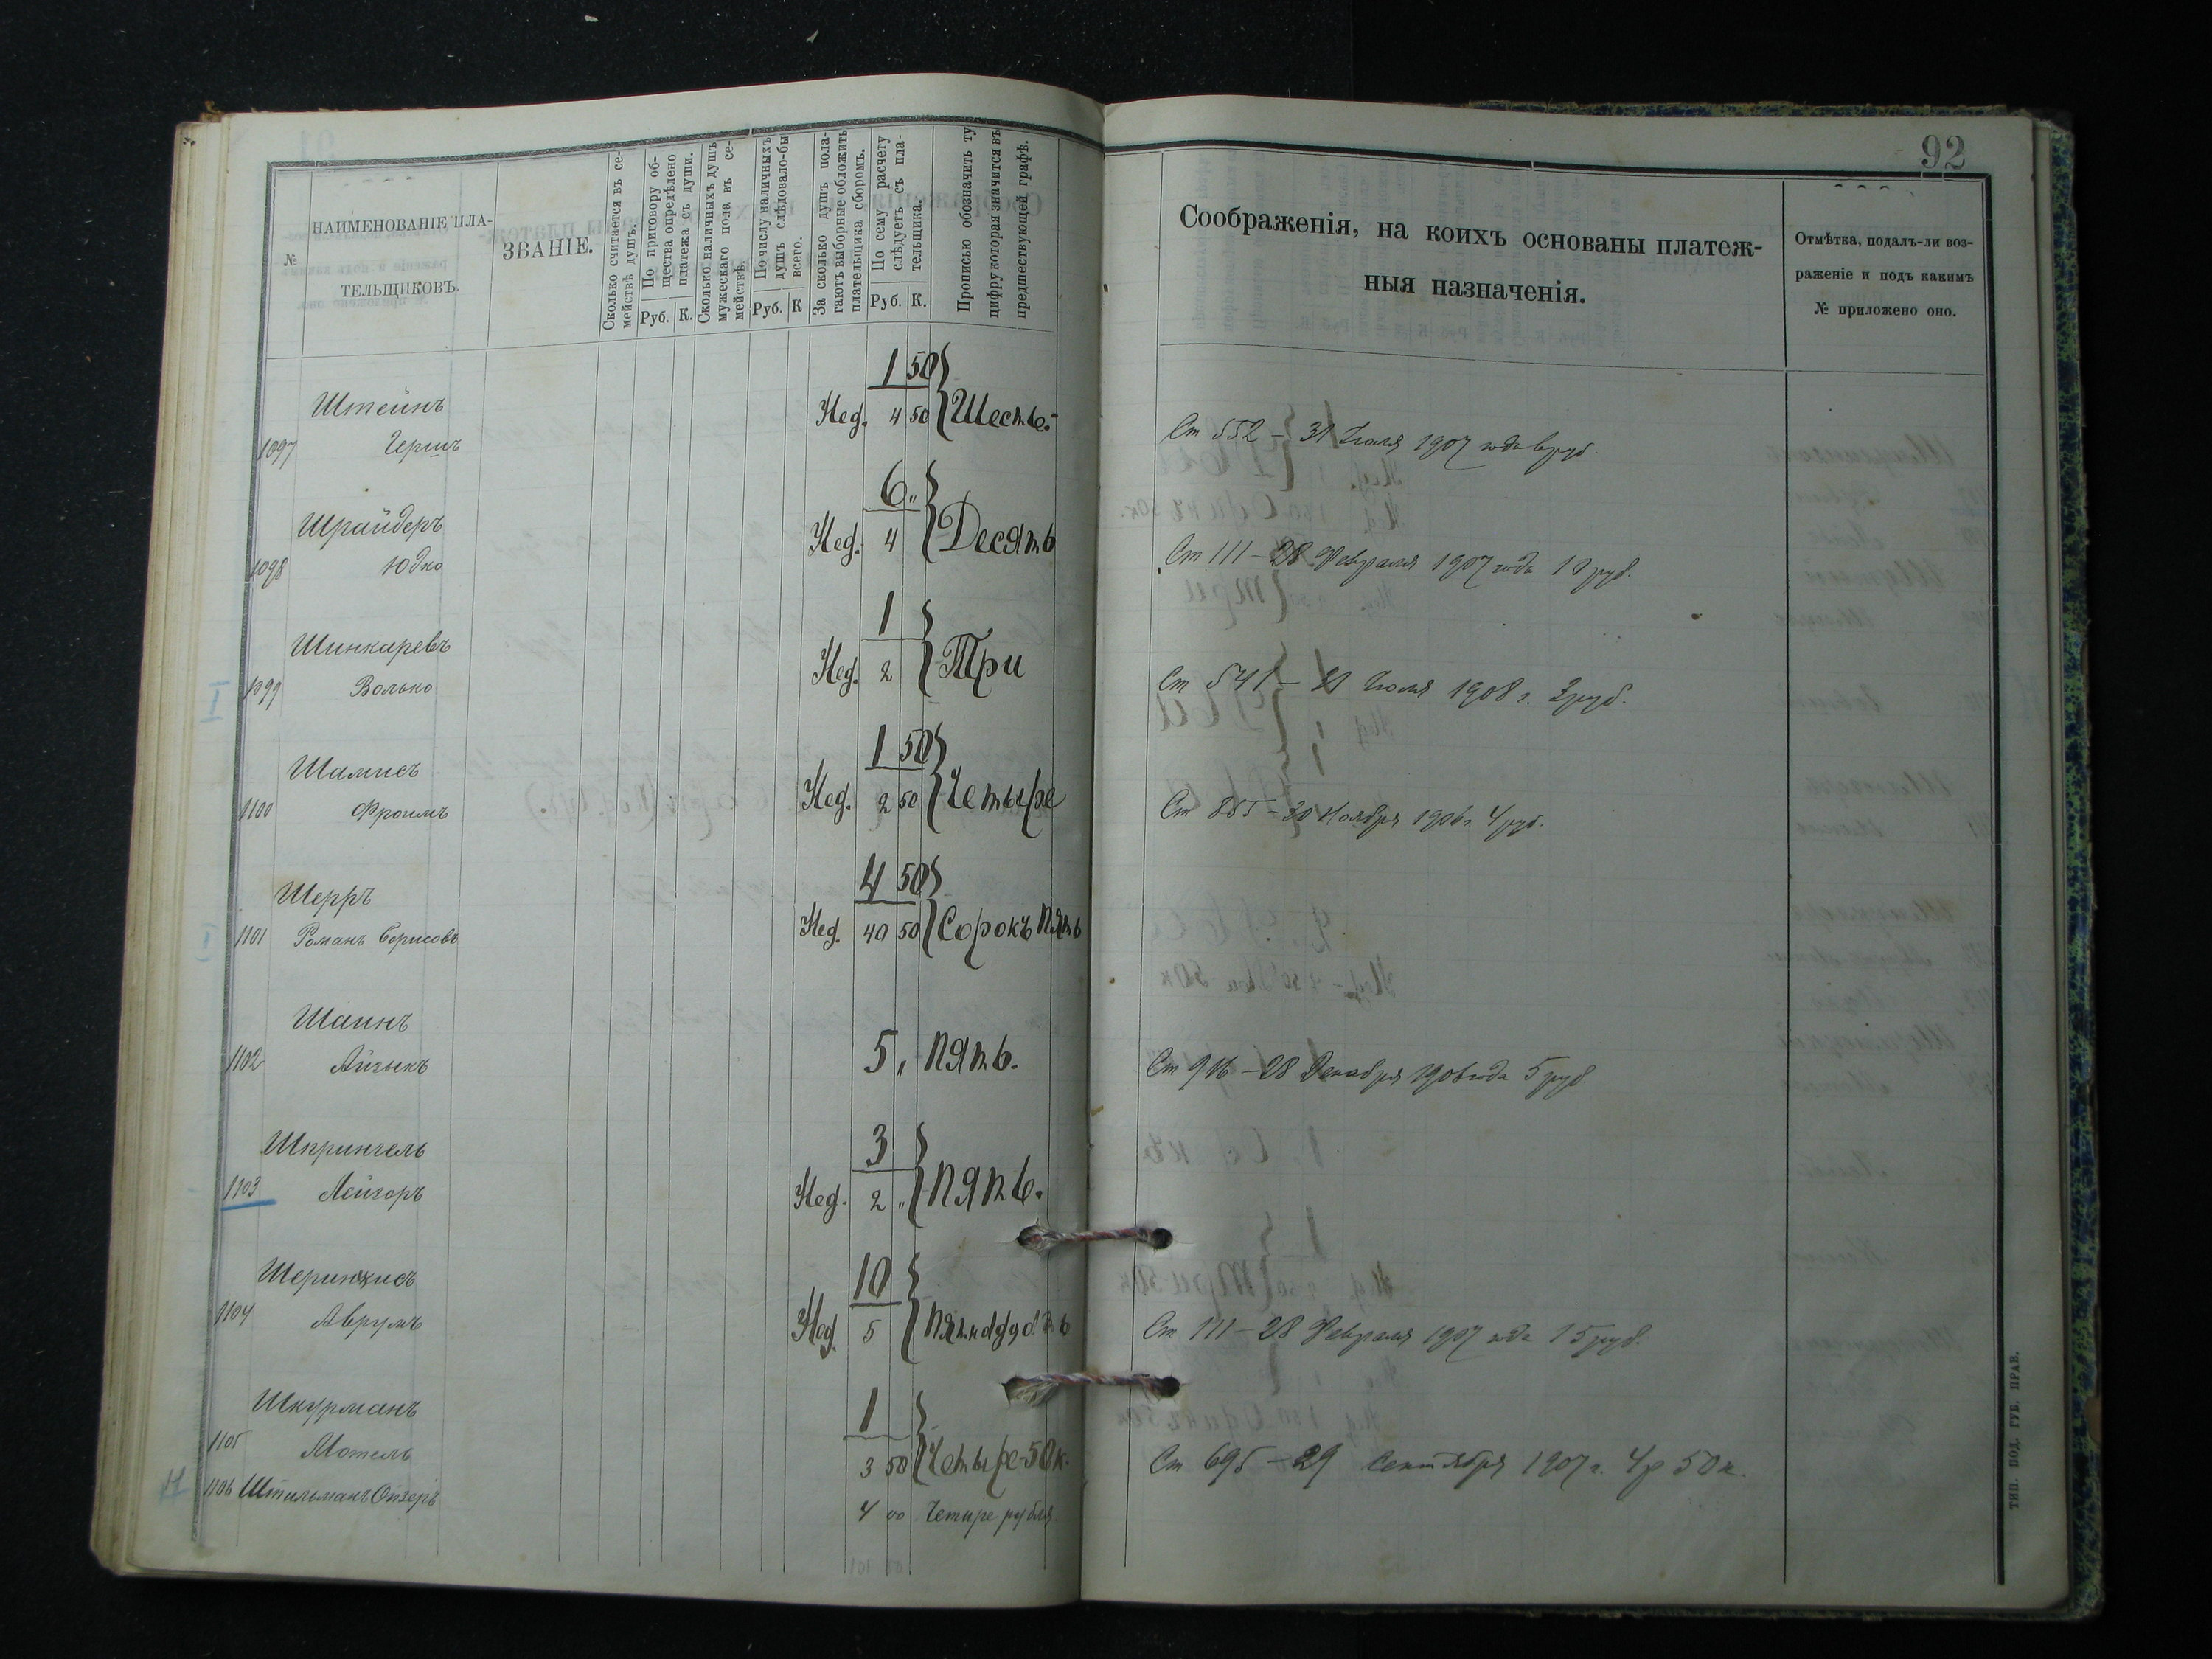 92
№
НАИМЕНОВАНІЕ ПЛА-
ТЕЛЬЩИКОВЪ.
ЗВАНІЕ.
Сколько считается въ се-
мействѣ душъ.
По приговору об-
щества опредѣлено
платежа съ души.
Руб. К.
Сколько наличныхъ душъ
мужескаго пола въ се-
мействѣ.
По числу наличныхъ
душъ слѣдовало-бы
всего.
Руб. К
За сколько душъ пола-
гаютъ выборные обложить
плательщика сборомъ.
По сему расчету
слѣдуетъ съ пла-
тельщика.
Руб. К.
Прописью обозначить ту
цифру которая значится въ
предшествующей графѣ.
Соображенія, на коихъ основаны платеж-
ныя назначенія.
Отмѣтка, подалъ-ли воз-
раженіе и подъ какимъ
№ приложено оно.
1 50
Штейнъ Нед. 4 50 Шесть.
1097 Гершъ Ст 552 – 31 Іюля 1907 года 6 руб.
6 "
Шрайдеръ Нед. 4 Десять
1098 Юдко Ст 111 – 28 Февраля 1907 года 10 руб.
1
Шинкаревъ Нед. 2 Три
1099 Волько Ст 541 – 21 Іюля 1908 г. 3 руб.
1 50
Шамисъ Нед. 2 50 Четыре
1100 Фроимъ Ст 855 – 30 Ноября 1906 г. 4 руб.
4 50
Шерръ Нед. 40 50 Сорокъ Пять
1101 Романъ Борисовъ
Шаинъ 5 " Пять.
1102 Айзыкъ Ст 916 – 28 Декабря 1906 года 5 руб.
3
Шпрингель Нед. 2 " Пять.
1103 Лейзоръ
10
Шеринхисъ Нед. 5 Пятнадцать
1104 Аврумъ Ст 111 – 28 Февраля 1907 года 15 руб.
1
Шкурманъ 3 50 Четыре 50 к.
1105 Мотель Ст 695 – 29 Сентября 1907 г. 4 р 50 к.
1106 Штильманъ Ойзеръ 4 00 Четире рубля
ТИП. ПОД. ГУБ. ПРАВ.